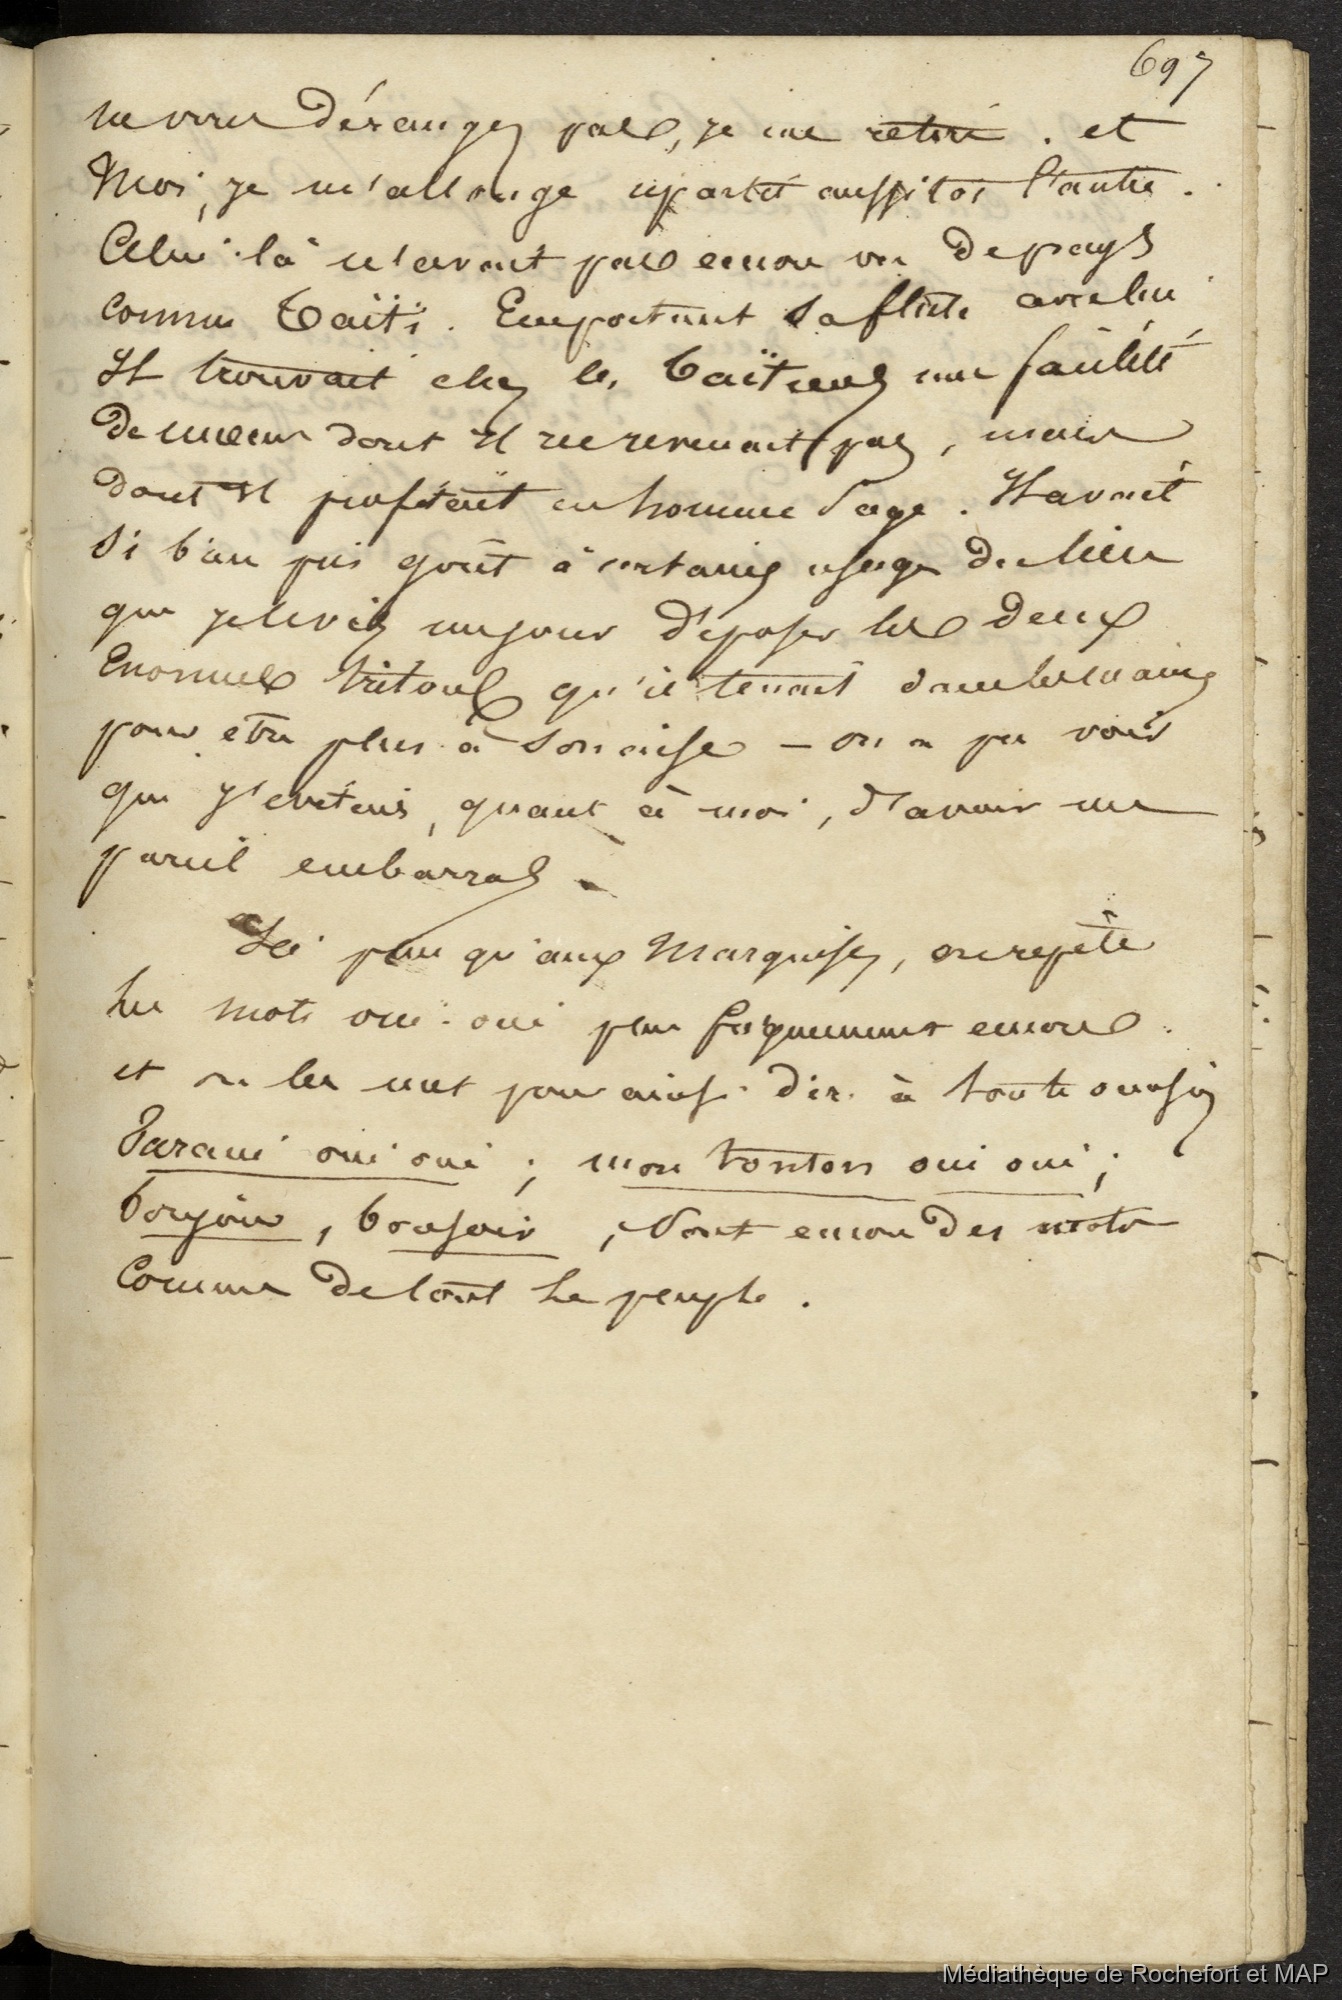 697
ne vous dérangez pas, je me retire. et
Moi, je m'allonge repartit aussitôt l'autre.
Celui-là n'avait pas encore vu de pays
comme Taïti. Emportant sa flûte avec lui
Il trouvait chez les Taïtiens une facilité
de moeurs dont il ne revenait pas, mais
dont il profitait en homme sage. Il avait
si bien pris goût à certains usages du lieu
que je le vis un jour déposer les deux
Enormes tritons qu'il tenait dans les mains
pour être plus à son aise – on a pu voir
que j'évitais, quant à moi, d'avoir un
pareil embarras.
Ici plus qu'aux Marquises, on répète
les mots oui-oui plus fréquemment encore
et on les met pour ainsi dire à toute occasion
Farani oui oui ; mon tonton oui oui ;
bonjour, bonsoir, sont encore des mots
connus de tout le peuple.
Médiathèque de Rochefort et MAP